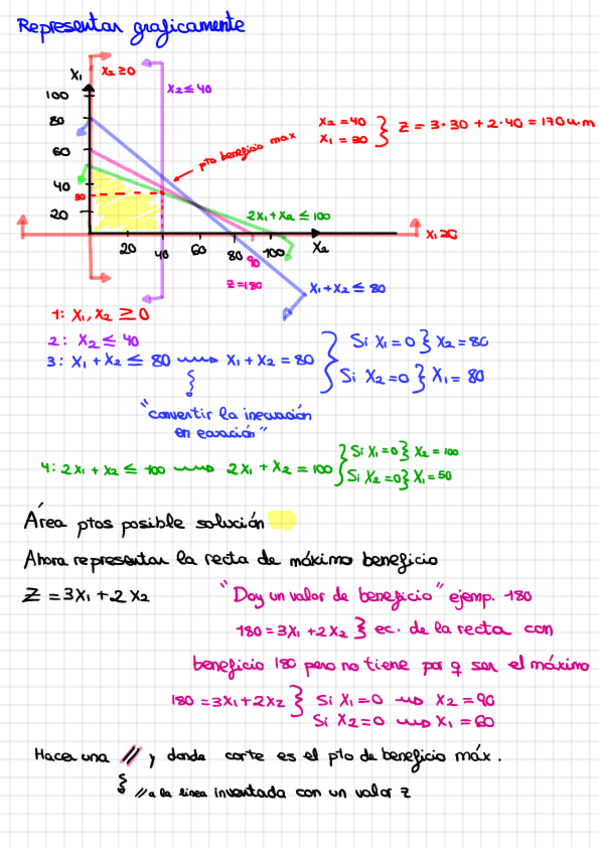 Representar graficamente
X₁
X₂ ≥ 0
X₂ ≤ 40
100
80
60
40
30
20
pto beneficio max
X₂ = 40
X₁ = 30
} Z = 3·30 + 2·40 = 170 u.m
2X₁ + X₂ ≤ 100
20
40
60
80
90
100
X₂
X₁ ≥ 0
Z = 180
X₁ + X₂ ≤ 80
1: X₁, X₂ ≥ 0
2: X₂ ≤ 40
3: X₁ + X₂ ≤ 80 → X₁ + X₂ = 80 } Si X₁ = 0 } X₂ = 80
Si X₂ = 0 } X₁ = 80
"convertir la inecuación
en ecuación"
4: 2X₁ + X₂ ≤ 100 → 2X₁ + X₂ = 100 } Si X₁ = 0 } X₂ = 100
Si X₂ = 0 } X₁ = 50
Área ptos posible solución
Ahora representar la recta de máximo beneficio
Z = 3X₁ + 2X₂
"Doy un valor de beneficio" ejemp. 180
180 = 3X₁ + 2X₂ } ec. de la recta con
beneficio 180 pero no tiene por q ser el máximo
180 = 3X₁ + 2X₂ } Si X₁ = 0 → X₂ = 90
Si X₂ = 0 → X₁ = 60
Hacer una // y donde corte es el pto de beneficio máx.
// a la linea inventada con un valor z